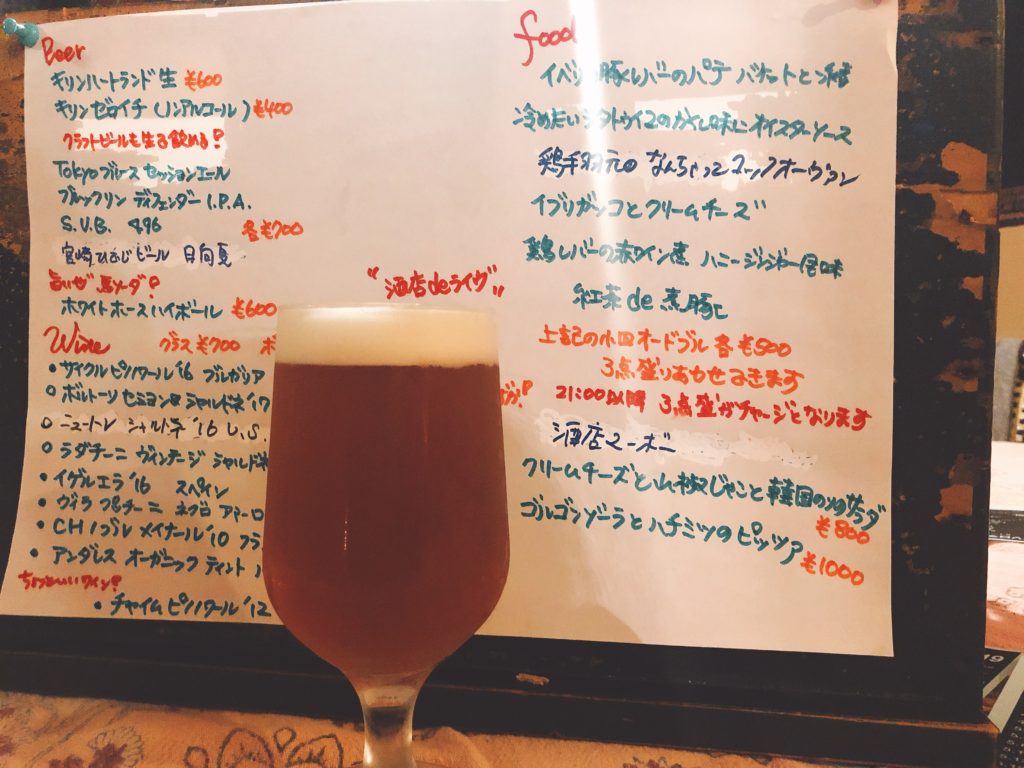 Beer
キリンハートランド生 ¥600
キリンゼロイチ (ノンアルコール) ¥400
クラフトビールも生る飲める!
Tokyoブルース セッションエール
ブルックリン ディフェンダー I.P.A.
S.V.B. 496 各¥700
宮崎ひでじビール 日向夏
旨いぜ 馬ソーダ!
ホワイトホースハイボール ¥600
Wine グラス ¥700 ボ
• サイクルピノノワール '16 ブルガリア
○ ボルトーリ セミヨン& シャルドネ '17
○ ニュートレ シャルドネ '16 U.S.
○ ラダチーニ ヴィンテージ シャルドネ
• イゲルエラ '16 スペイン
• ヴィラ
• CH ノブル メイナール '10 フラ
• アンダルス オーガニック ティント
ちょっといいワイン!
• チャイム ピノノワール '12
"酒店deライヴ"
food
イベリ 豚レバーのパテ バケットと
冷めたいラタトゥイユのかくし味にオイスターソース
鶏手羽元の なんちゃって コックオーヴァン
イブリガッコとクリームチーズ
鶏レバーの赤ワイン煮 ハニージンジャー風味
紅茶de煮豚
上記の小皿オードブル 各¥500
3点盛りあわせできます
21:00以降 3点盛がチャージとなります
酒店マーボー
クリームチーズと山椒じゃこと韓国のりのサラダ
¥800
ゴルゴンゾーラとハチミツのピッツア
¥1000
19